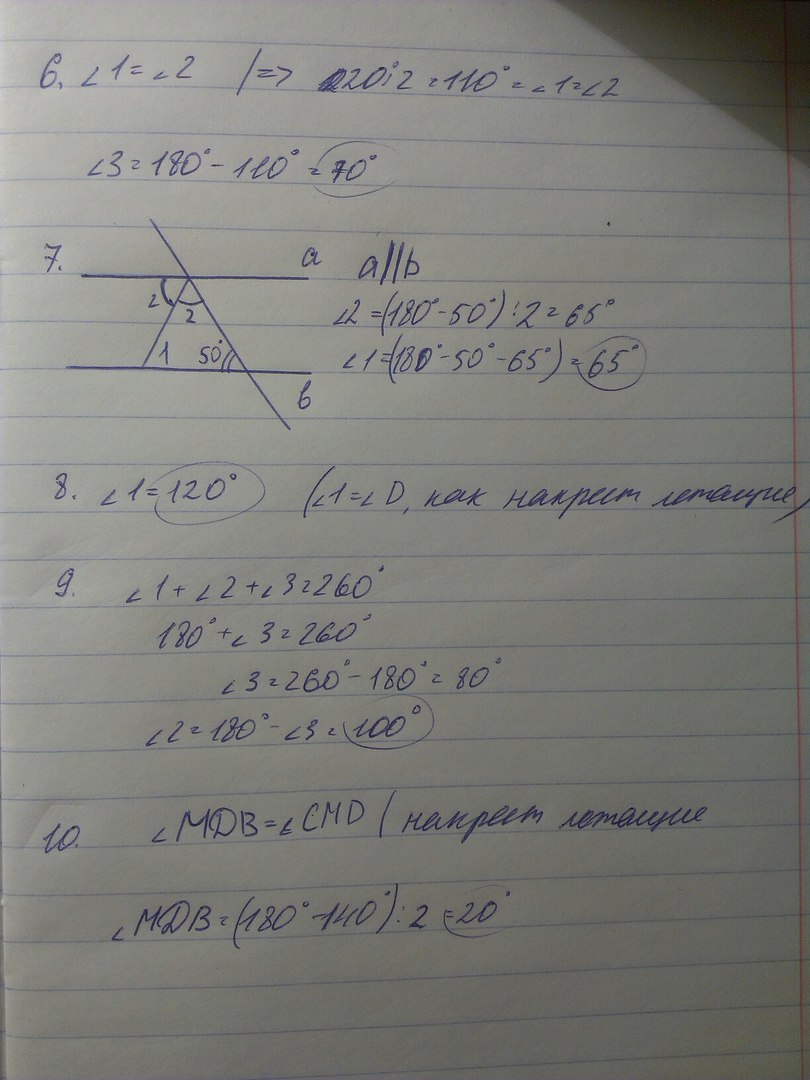 6. ∠1=∠2 |=> 220:2=110°=∠1=∠2
∠3=180°-110°=70°
7. a a||b
2 2 ∠2=(180°-50°):2=65°
1 50° ∠1=(180°-50°-65°)=65°
b
8. ∠1=120° (∠1=∠D, как накрест лежащие)
9. ∠1+∠2+∠3=260°
180°+∠3=260°
∠3=260°-180°=80°
∠2=180°-∠3=100°
10. ∠MDB=∠CMD (накрест лежащие
∠MDB=(180°-140°):2=20°